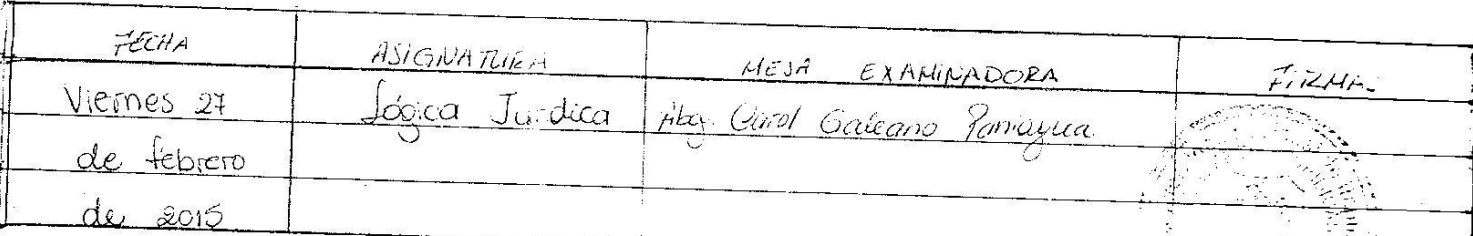 FECHA ASIGNATURA MESA EXAMINADORA FIRMA
Viernes 27 Lógica Jurídica Abg. Carol Galeano Paniagua
de febrero
de 2015